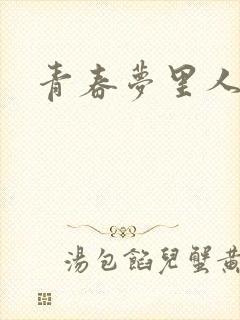 青春夢里人
湯包餡兒蟹黃